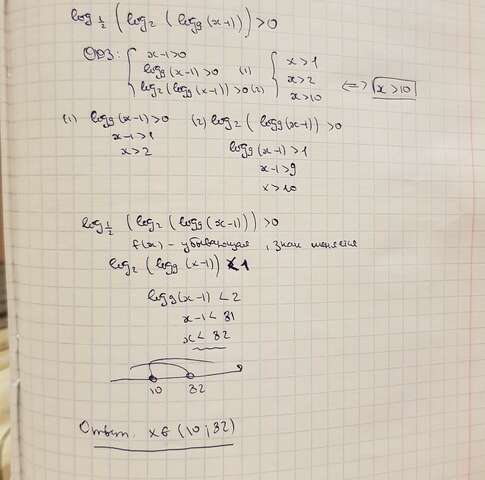 log½ (log₂ (log₉ (x-1))) > 0
ОДЗ: { x-1>0
log₉(x-1) >0 (1)
log₂(log₉(x-1)) >0 (2)
{ x>1
x>2
x>10
<=> x>10
(1) log₉(x-1)>0
x-1>1
x>2
(2) log₂(log₉(x-1)) >0
log₉(x-1) >1
x-1>9
x>10
log½ (log₂(log₉(x-1))) >0
f(x) - убывающая, знак меняется
log₂ (log₉ (x-1)) <1
log₉(x-1) <2
x-1< 81
x< 82
10 82
Ответ. xϵ (10;82)